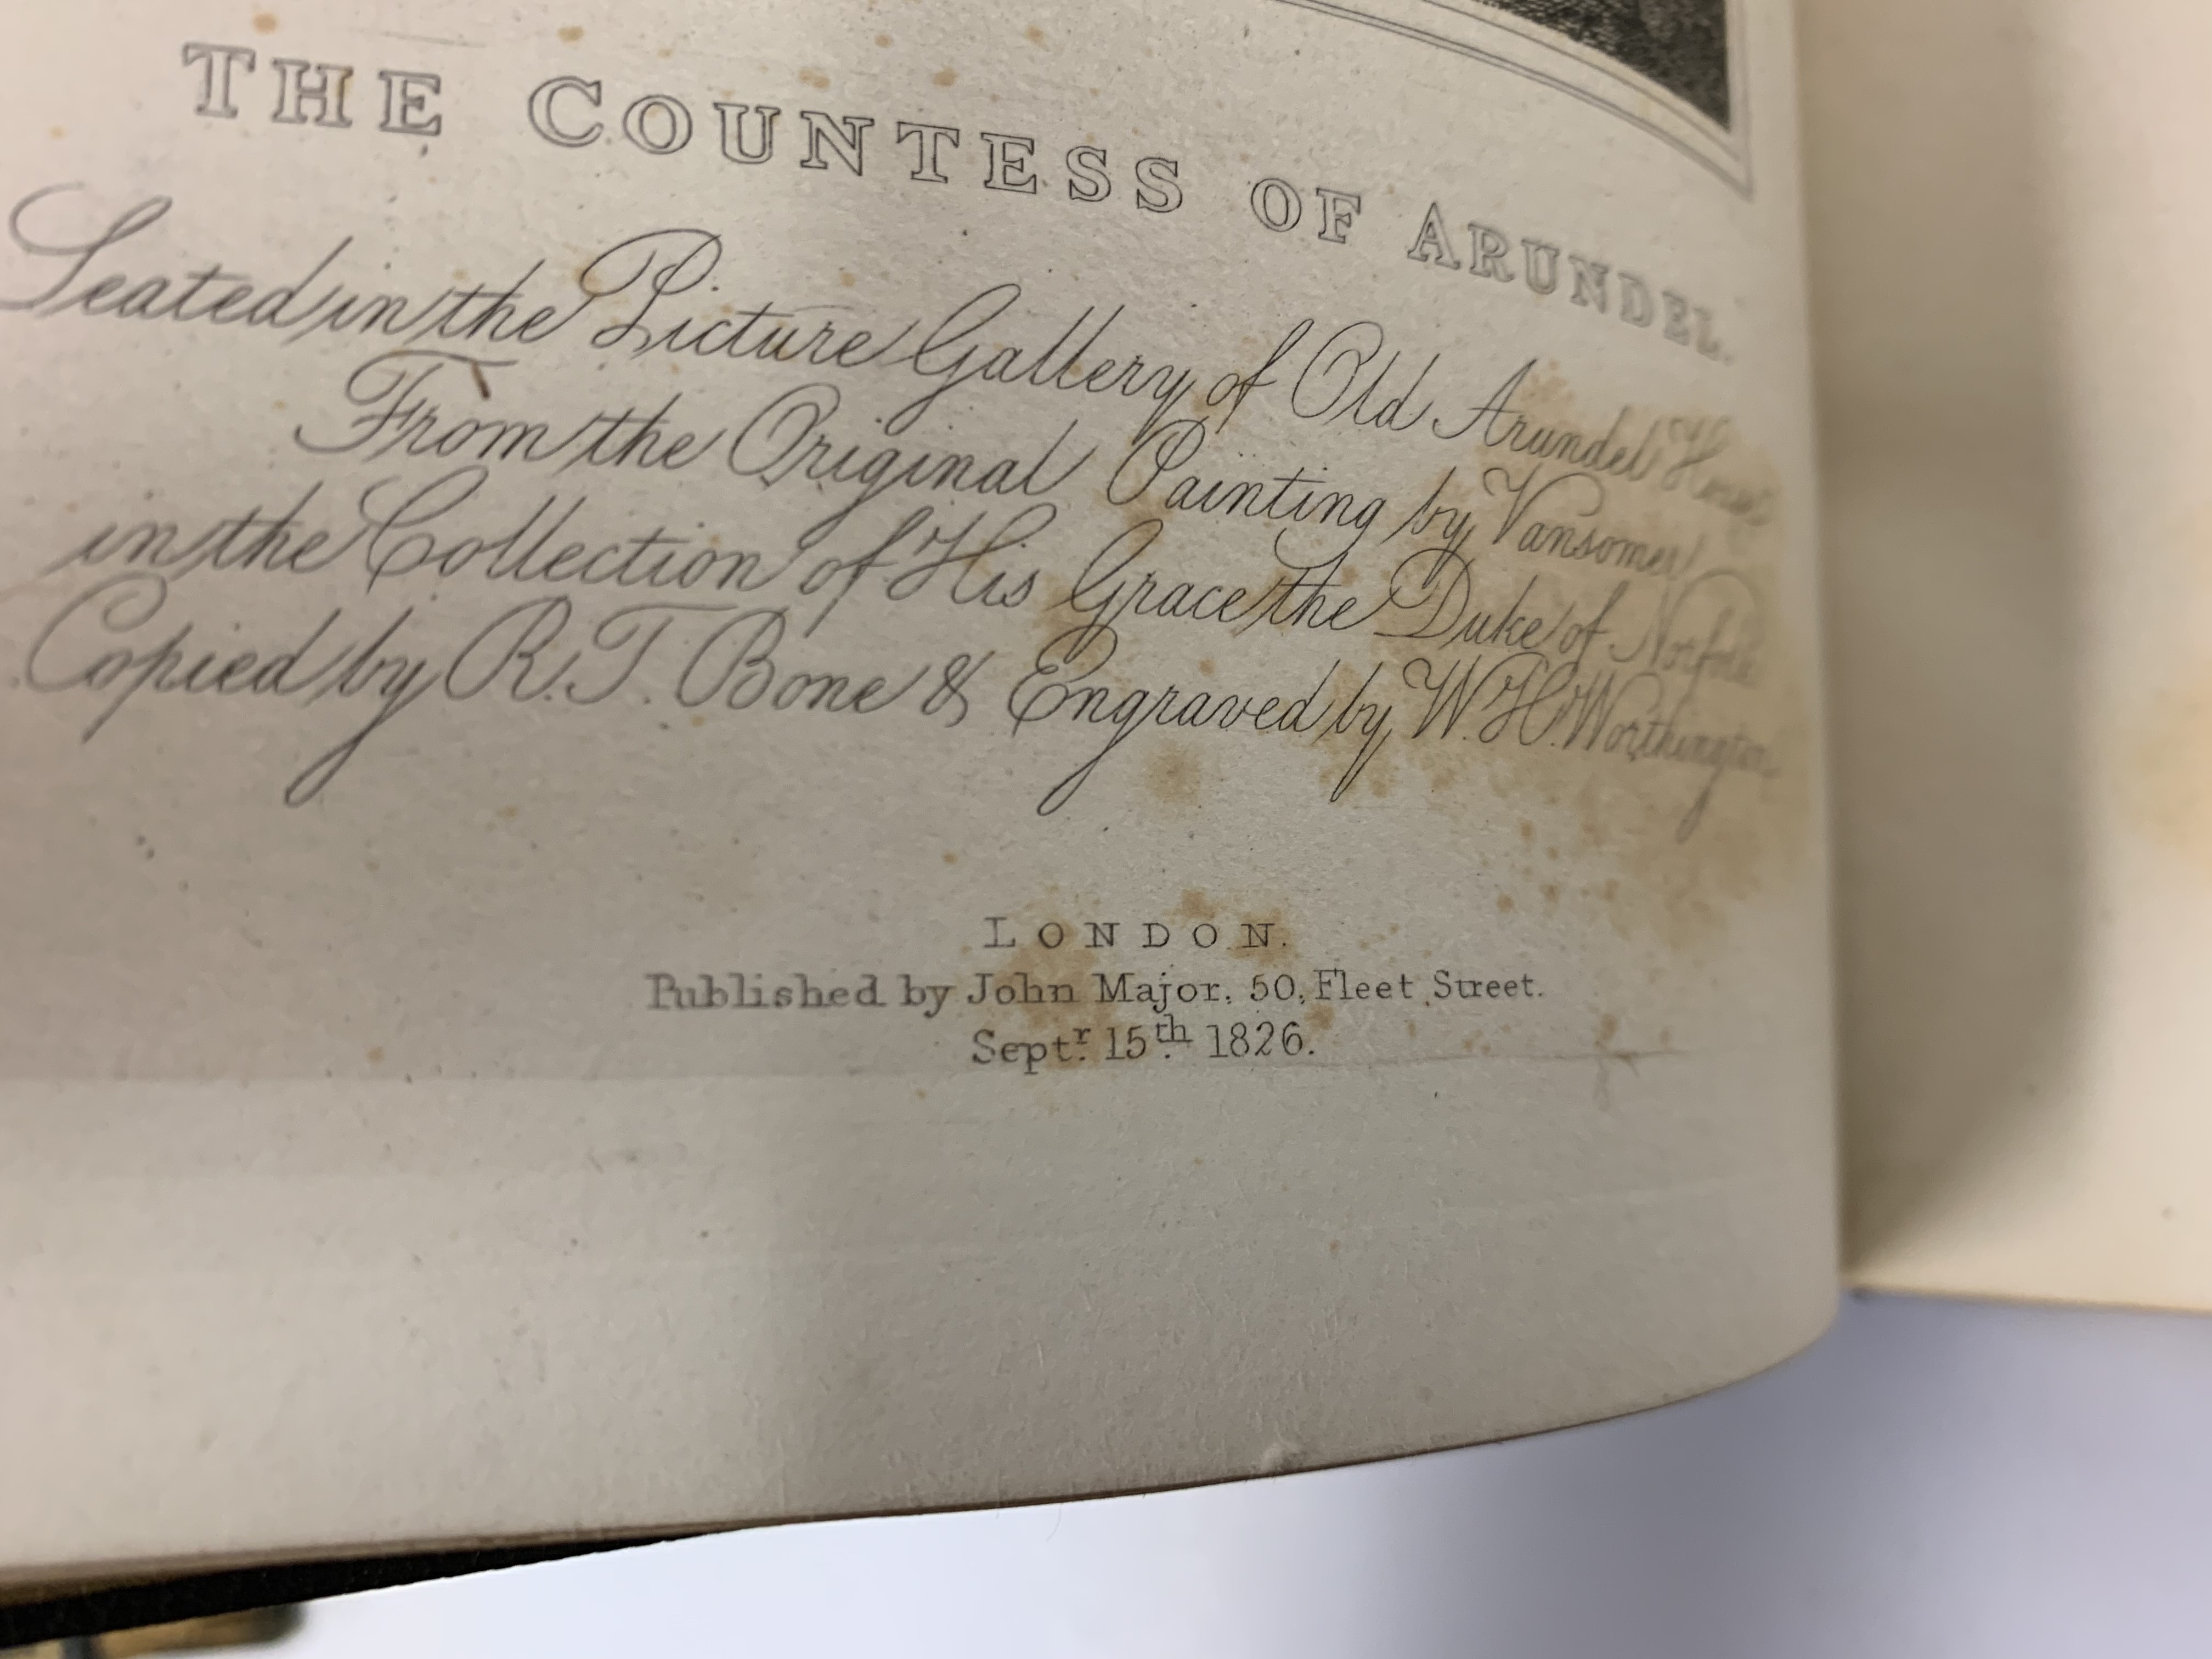 THE COUNTESS OF ARUNDEL.
Seated in the Picture Gallery of Old Arundel House
From the Original Painting by Vansomer
in the Collection of His Grace the Duke of Norfolk
Copied by R.T. Bone & Engraved by W.H. Worthington
LONDON.
Published by John Major, 50, Fleet Street.
Septr. 15th. 1826.